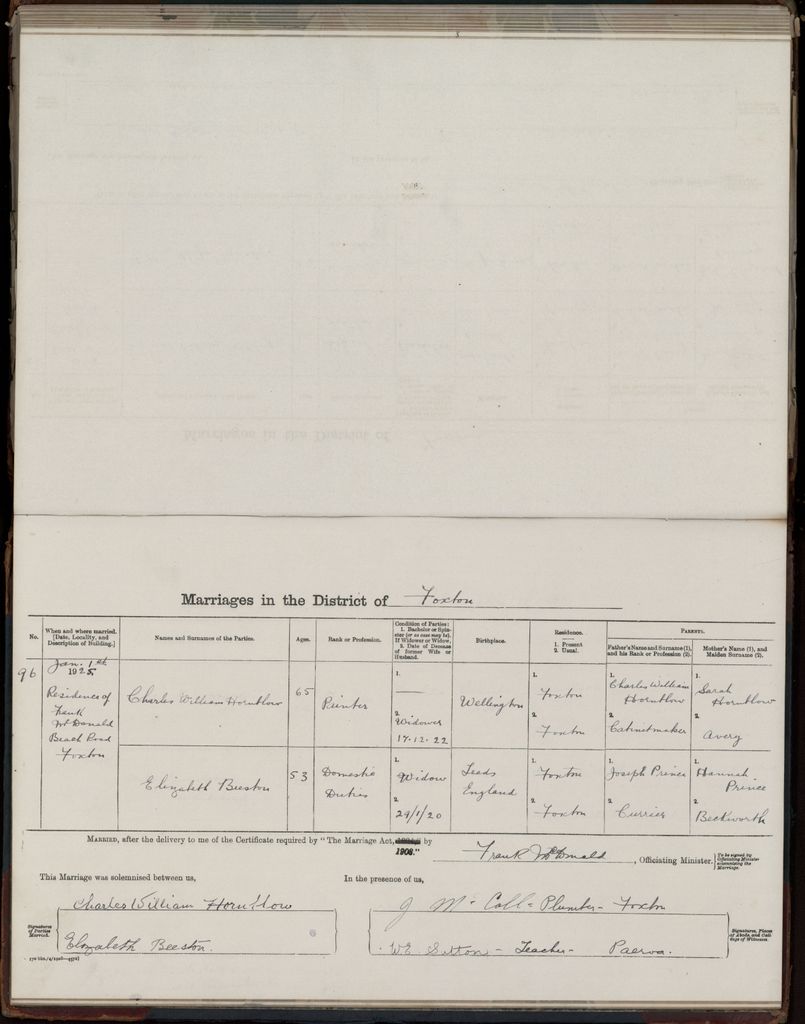 Marriages in the District of Foxton
No.
When and where married. [Date, Locality, and Description of Building.]
Names and Surnames of the Parties.
Ages.
Rank or Profession.
Condition of Parties: 1. Bachelor or Spinster (or as case may be). If Widower or Widow, 2. Date of Decease of former Wife or Husband.
Birthplace.
Residence. 1. Present 2. Usual.
PARENTS.
Father's Name and Surname (1), and his Rank or Profession (2).
Mother's Name (1), and Maiden Surname (2).
96
Jan. 1st
1925
Residence of
Frank
McDonald
Beach Road
Foxton
Charles William Hornblow
65
Printer
1.
2.
Widower
17.12.22
Wellington
1.
Foxton
2.
Foxton
1.
Charles William
Hornblow
2.
Cabinetmaker
1.
Sarah
Hornblow
2.
Avery
Elizabeth Beeston
53
Domestic
Duties
1.
Widow
2.
29/1/20
Leeds
England
1.
Foxton
2.
Foxton
1.
Joseph Prince
2.
Currier
1.
Hannah
Prince
2.
Beckworth
MARRIED, after the delivery to me of the Certificate required by "The Marriage Act, 1908." by Frank McDonald, Officiating Minister.
[To be signed by Officiating Minister solemnizing the Marriage.
This Marriage was solemnised between us,
In the presence of us,
Signatures of Parties Married.
Charles William Hornblow
Elizabeth Beeston.
J McColl - Plumber - Foxton
W.E. Sutton - Teacher - Paeroa.
Signatures, Places of Abode, and Callings of Witnesses.